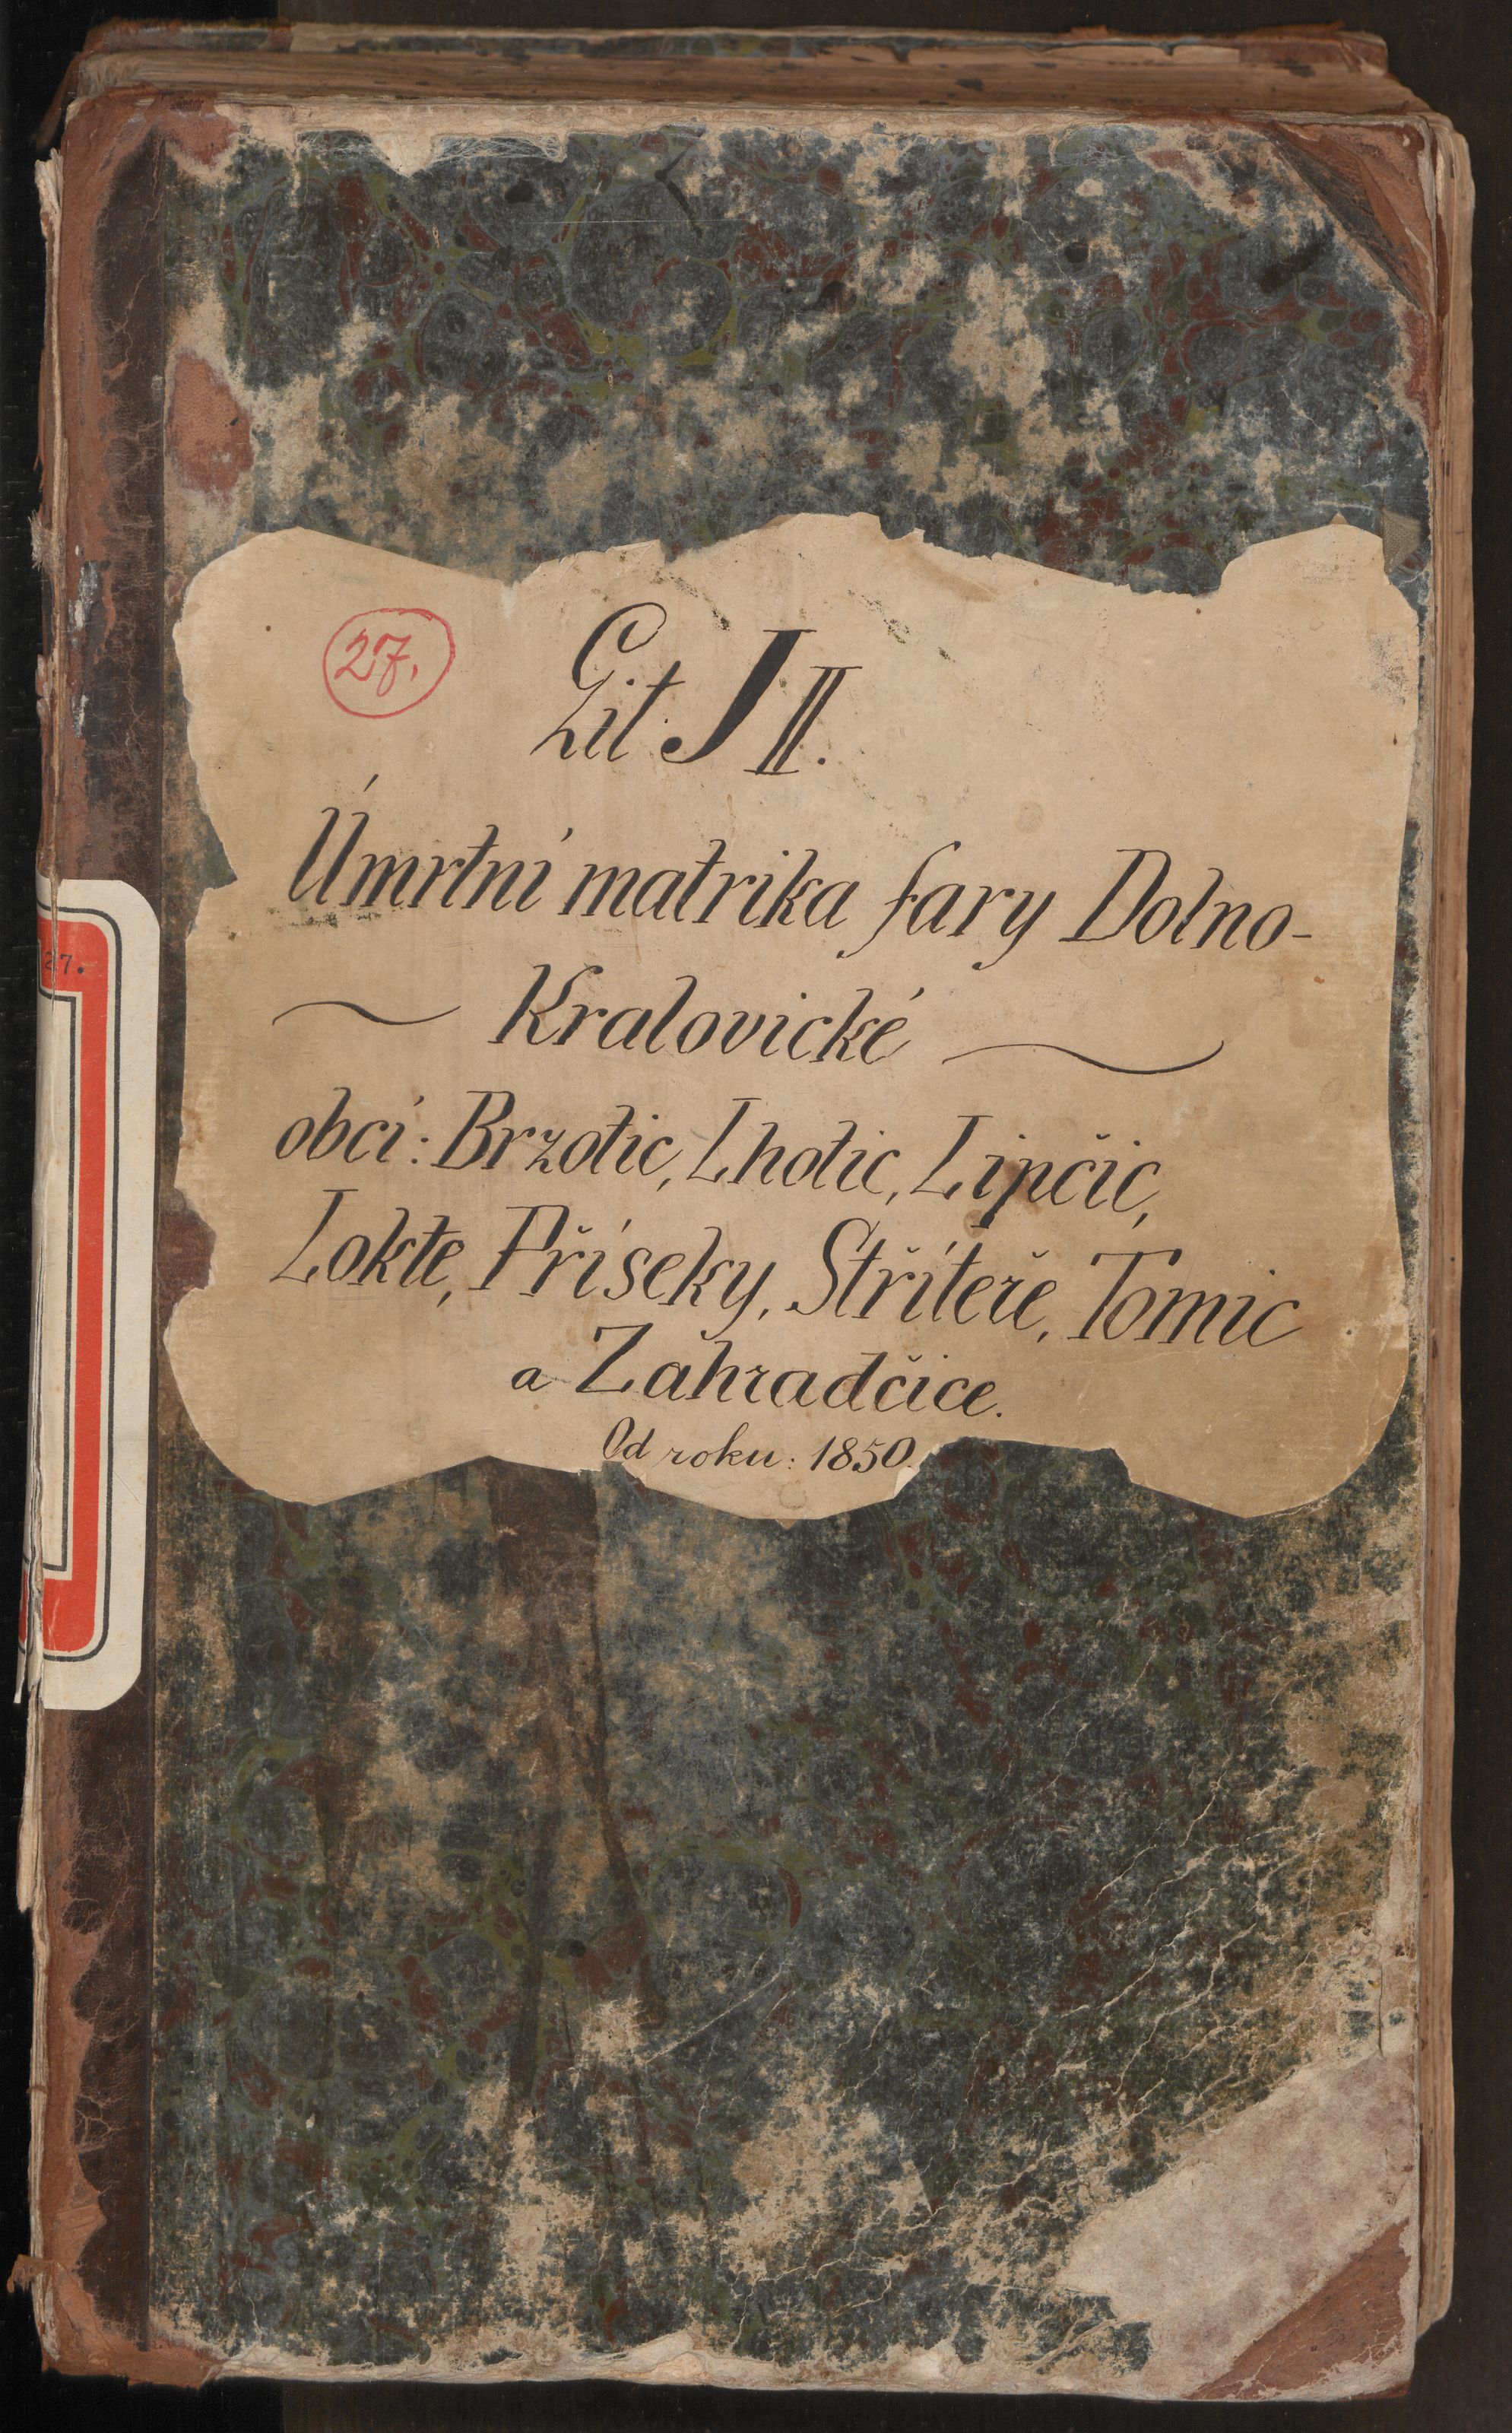 27.
Lit. J II.
Úmrtní matrika fary Dolno-
Kralovické
obcí: Brzotic, Lhotic, Lipčic,
Lokte, Příseky, Střiteře, Tomic
a Zahradčice.
Od roku: 1850.
27.